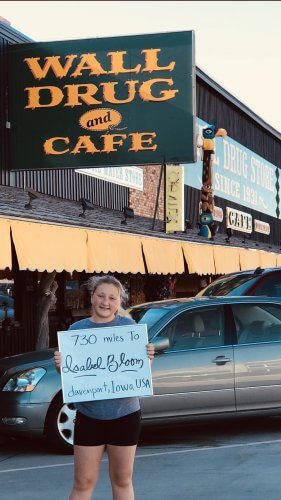 WALL
DRUG
and
CAFE
DRUG STORE
SINCE 1931
CAFE
730 miles to
Isabel Bloom
davenport, Iowa, USA